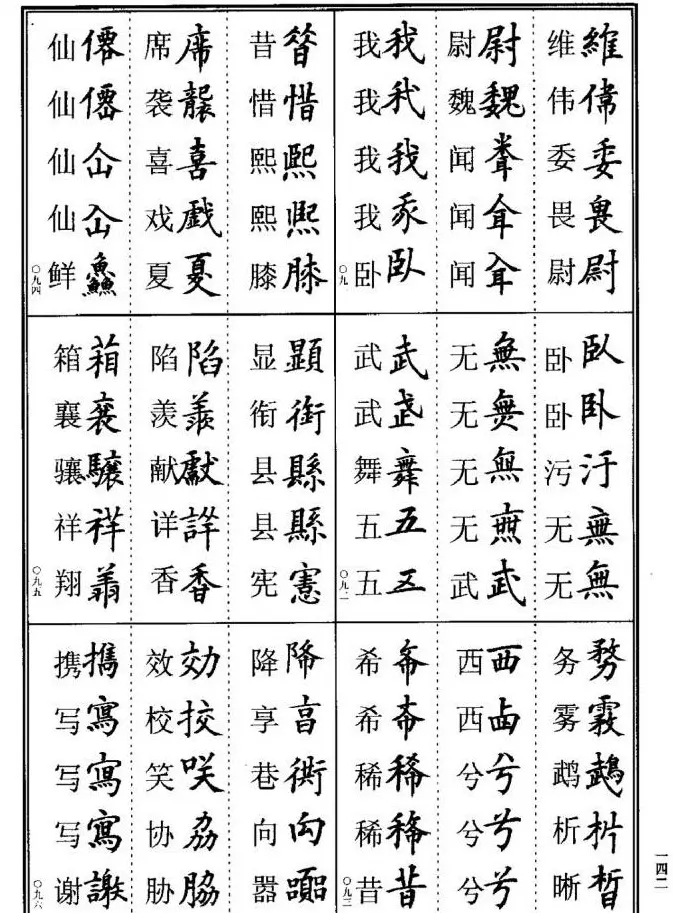 維偉委畏尉
维伟委畏尉
尉魏
尉魏闻闻闻
我我我卧
我我我我卧
〇九一
臥卧汙無無
卧卧污无无
無無無武
无无无无武
武舞五五
武武舞五五
〇九二
務
务雾鹉析晰
西兮兮
西西兮兮兮
稀昔
希希稀稀昔
〇九三
昔惜熙熙膝
昔惜熙熙膝
席襲喜戲夏
席袭喜戏夏
僊僊仚仚鱻
仙仙仙仙鲜
〇九四
顯銜縣縣憲
显衔县县宪
陷羨獻詳香
陷羡献详香
箱襄驤祥翔
箱襄骧祥翔
〇九五
降亯向
降享巷向嚣
効校咲脇
效校笑协胁
攜寫寫寫謝
携写写写谢
〇九六
一四二